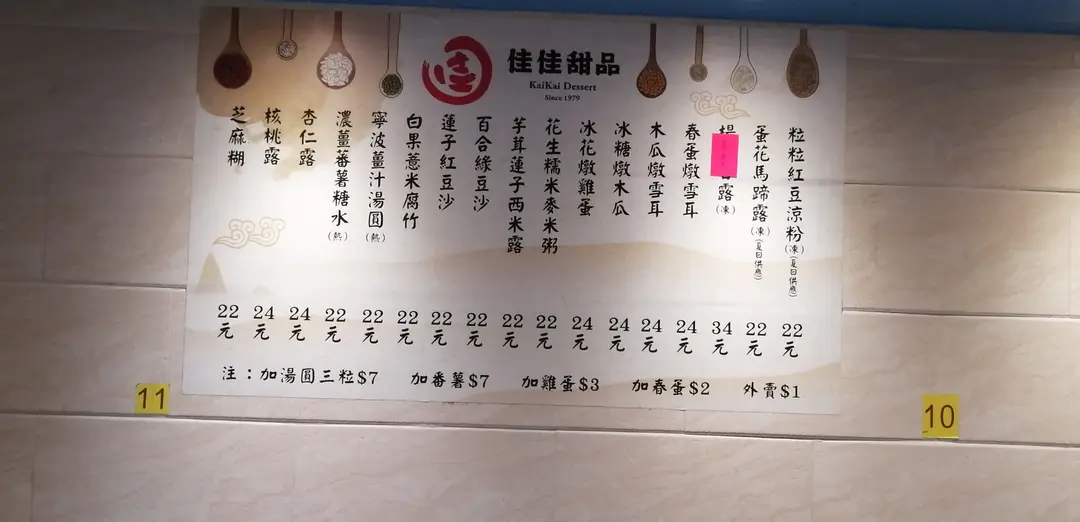 佳佳甜品
KaiKai Dessert
Since 1979
粒粒紅豆涼粉(凍)(夏日供應)
22元
蛋花馬蹄露(凍)(夏日供應)
22元
露(凍)
34元
春蛋燉雪耳
24元
木瓜燉雪耳
24元
冰糖燉木瓜
24元
冰花燉雞蛋
24元
花生糯米麥米粥
22元
芋茸蓮子西米露
22元
百合綠豆沙
22元
蓮子紅豆沙
22元
白果薏米腐竹
22元
寧波薑汁湯圓(熱)
22元
濃薑蕃薯糖水(熱)
22元
杏仁露
24元
核桃露
24元
芝麻糊
22元
注：加湯圓三粒$7 加番薯$7 加雞蛋$3 加春蛋$2 外賣$1
11
10